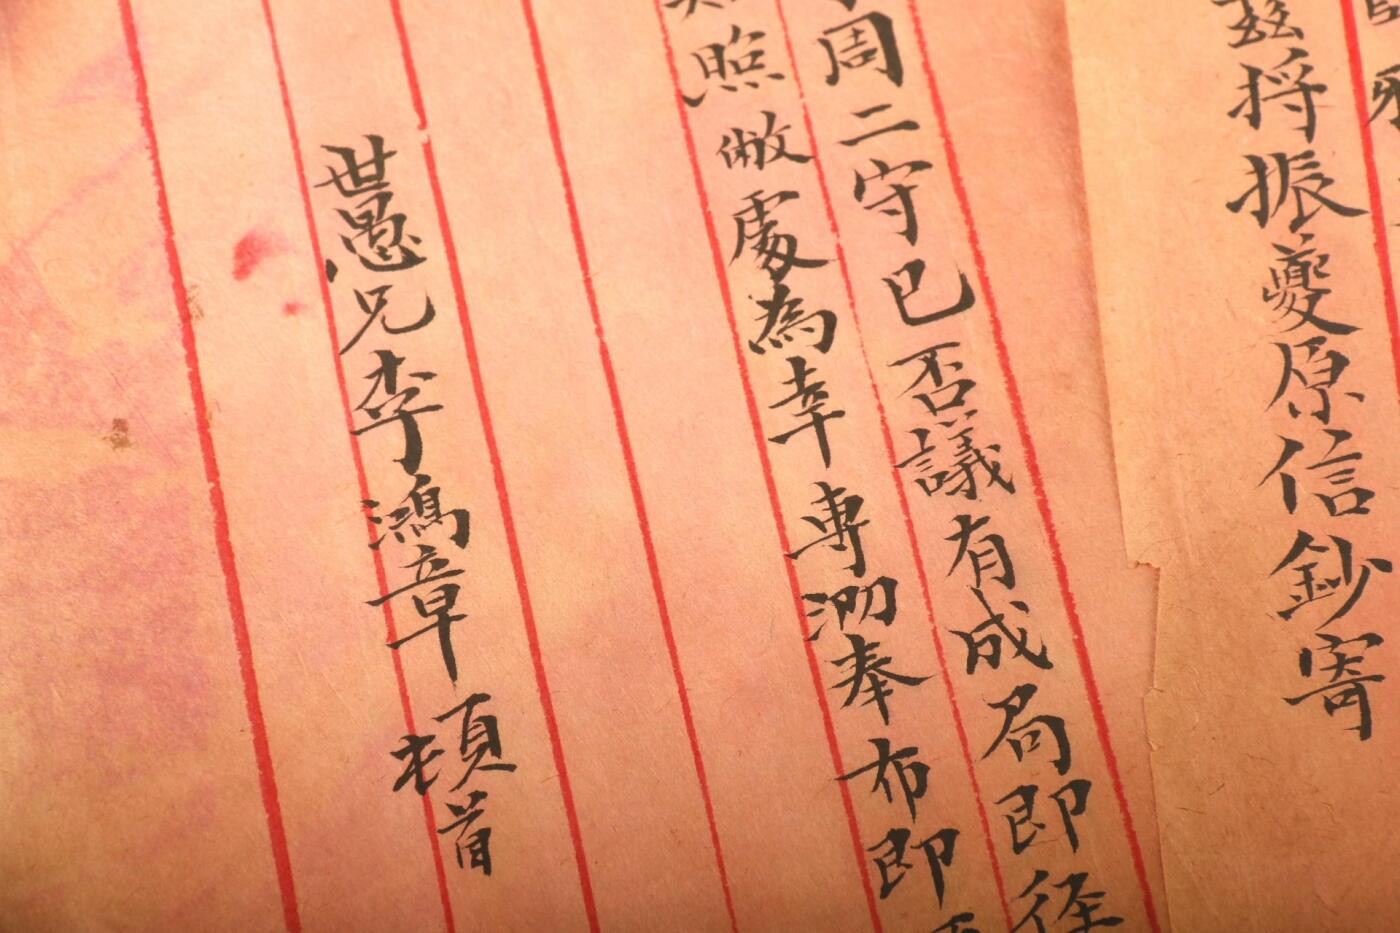 茲將振夔原信鈔寄
周二守已否議有成局即徑
照敝處為幸專泐奉布即
世愚兄李鴻章頓首